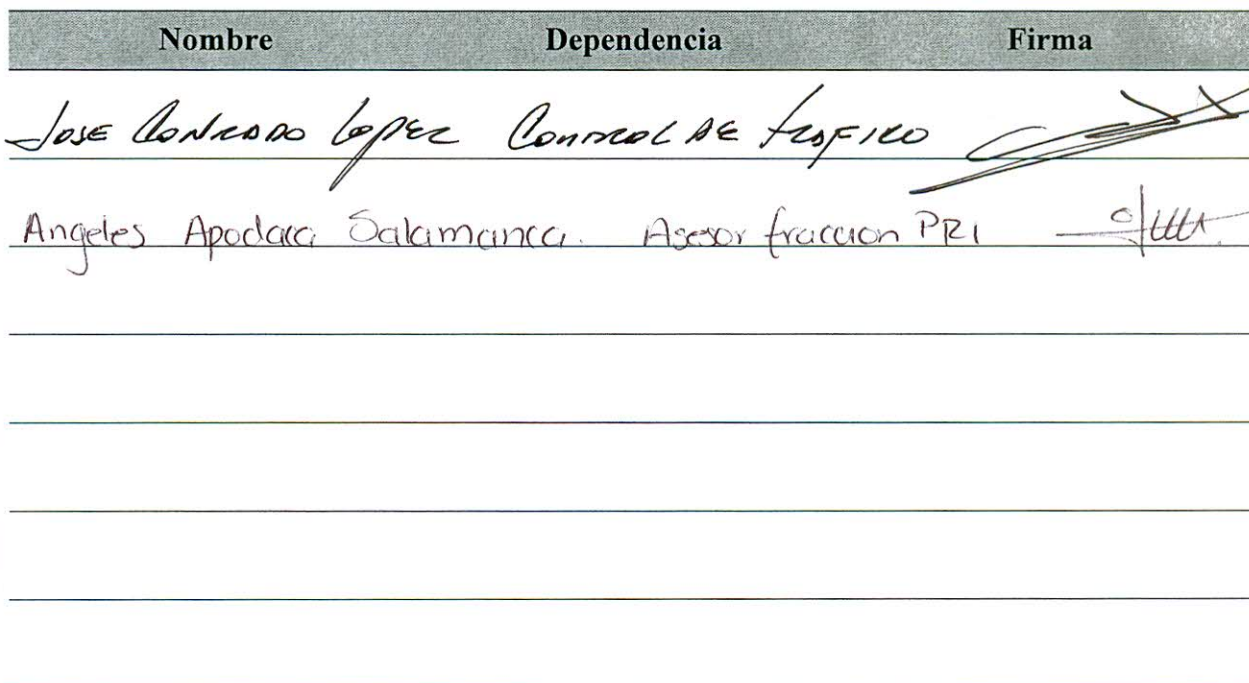 Nombre Dependencia Firma
JOSE CONRADO LOPEZ CONTROL DE TRAFICO
Angeles Apodaca Salamanca. Asesor fraccion PRI